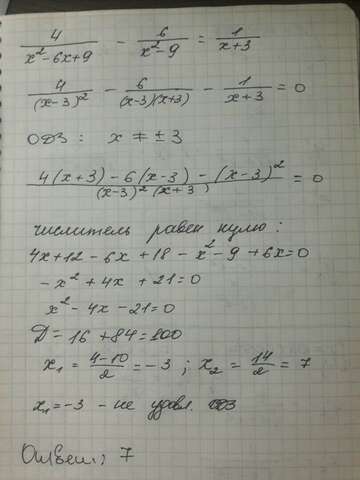 4/(x²-6x+9) - 6/(x²-9) = 1/(x+3)
4/(x-3)² - 6/((x-3)(x+3)) - 1/(x+3) = 0
ОДЗ: x ≠ ±3
(4(x+3) - 6(x-3) - (x-3)²)/((x-3)²(x+3)) = 0
числитель равен нулю:
4x+12 - 6x +18 - x² - 9 +6x=0
-x² + 4x + 21=0
x² - 4x - 21=0
D = 16 + 84 = 100
x₁ = (4-10)/2 = -3 ; x₂ = 14/2 = 7
x₁=-3 - не удовл. ОДЗ
Ответ: 7